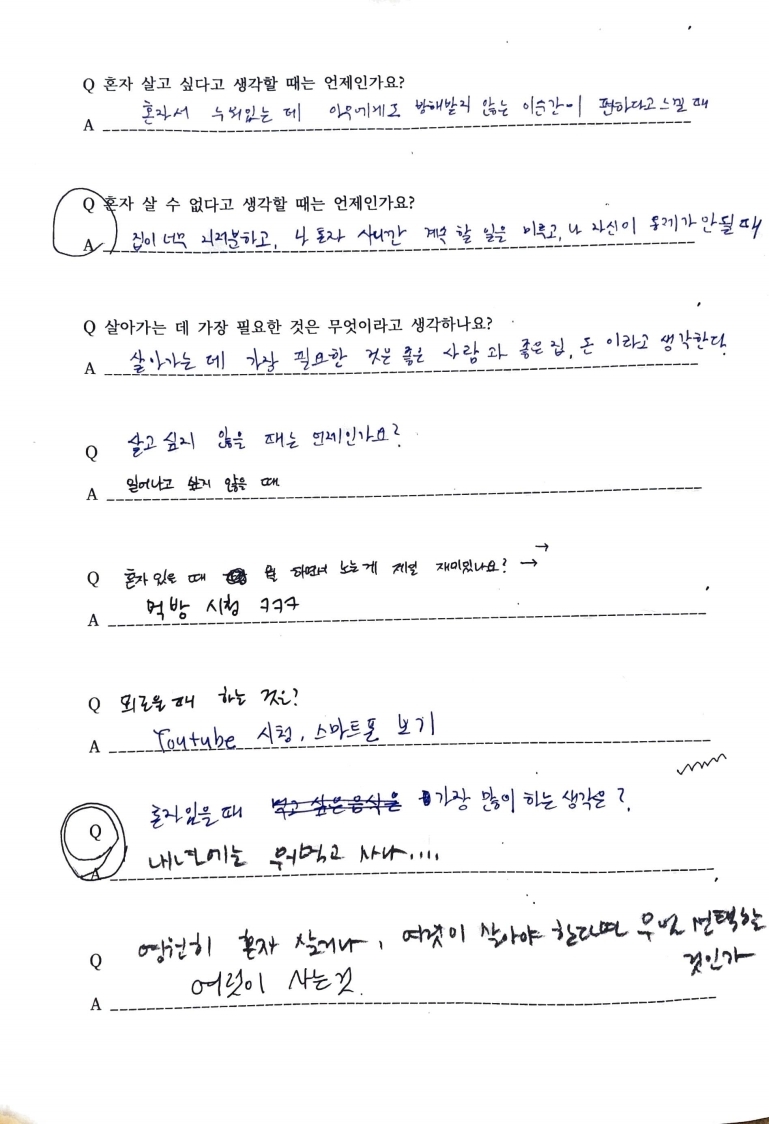 Q 혼자 살고 싶다고 생각할 때는 언제인가요?
A 혼자서 누워있는 데 아무에게도 방해받지 않는 이순간이 편하다고 느낄 때
Q 혼자 살 수 없다고 생각할 때는 언제인가요?
A 집이 너무 지저분하고, 나 혼자 사니깐 계속 할 일을 미루고, 나 자신이 통제가 안될 때
Q 살아가는 데 가장 필요한 것은 무엇이라고 생각하나요?
A 살아가는 데 가장 필요한 것은 좋은 사람과 좋은 집, 돈 이라고 생각한다.
Q 살고 싶지 않을 때는 언제인가요?
A 일어나고 싶지 않을 때
Q 혼자 있을 때 뭘 하면서 노는게 제일 재미있나요? →→
A 먹방 시청 ㅋㅋㅋ
Q 외로울 때 하는 것은?
A Youtube 시청, 스마트폰 보기
Q 혼자 있을 때 먹고 싶은 음식은 가장 많이 하는 생각은?
A 내년에는 뭐먹고 사나....
Q 영원히 혼자 살거나, 여럿이 살아야 한다면 무얼 선택할
것인가
A 여럿이 사는것.